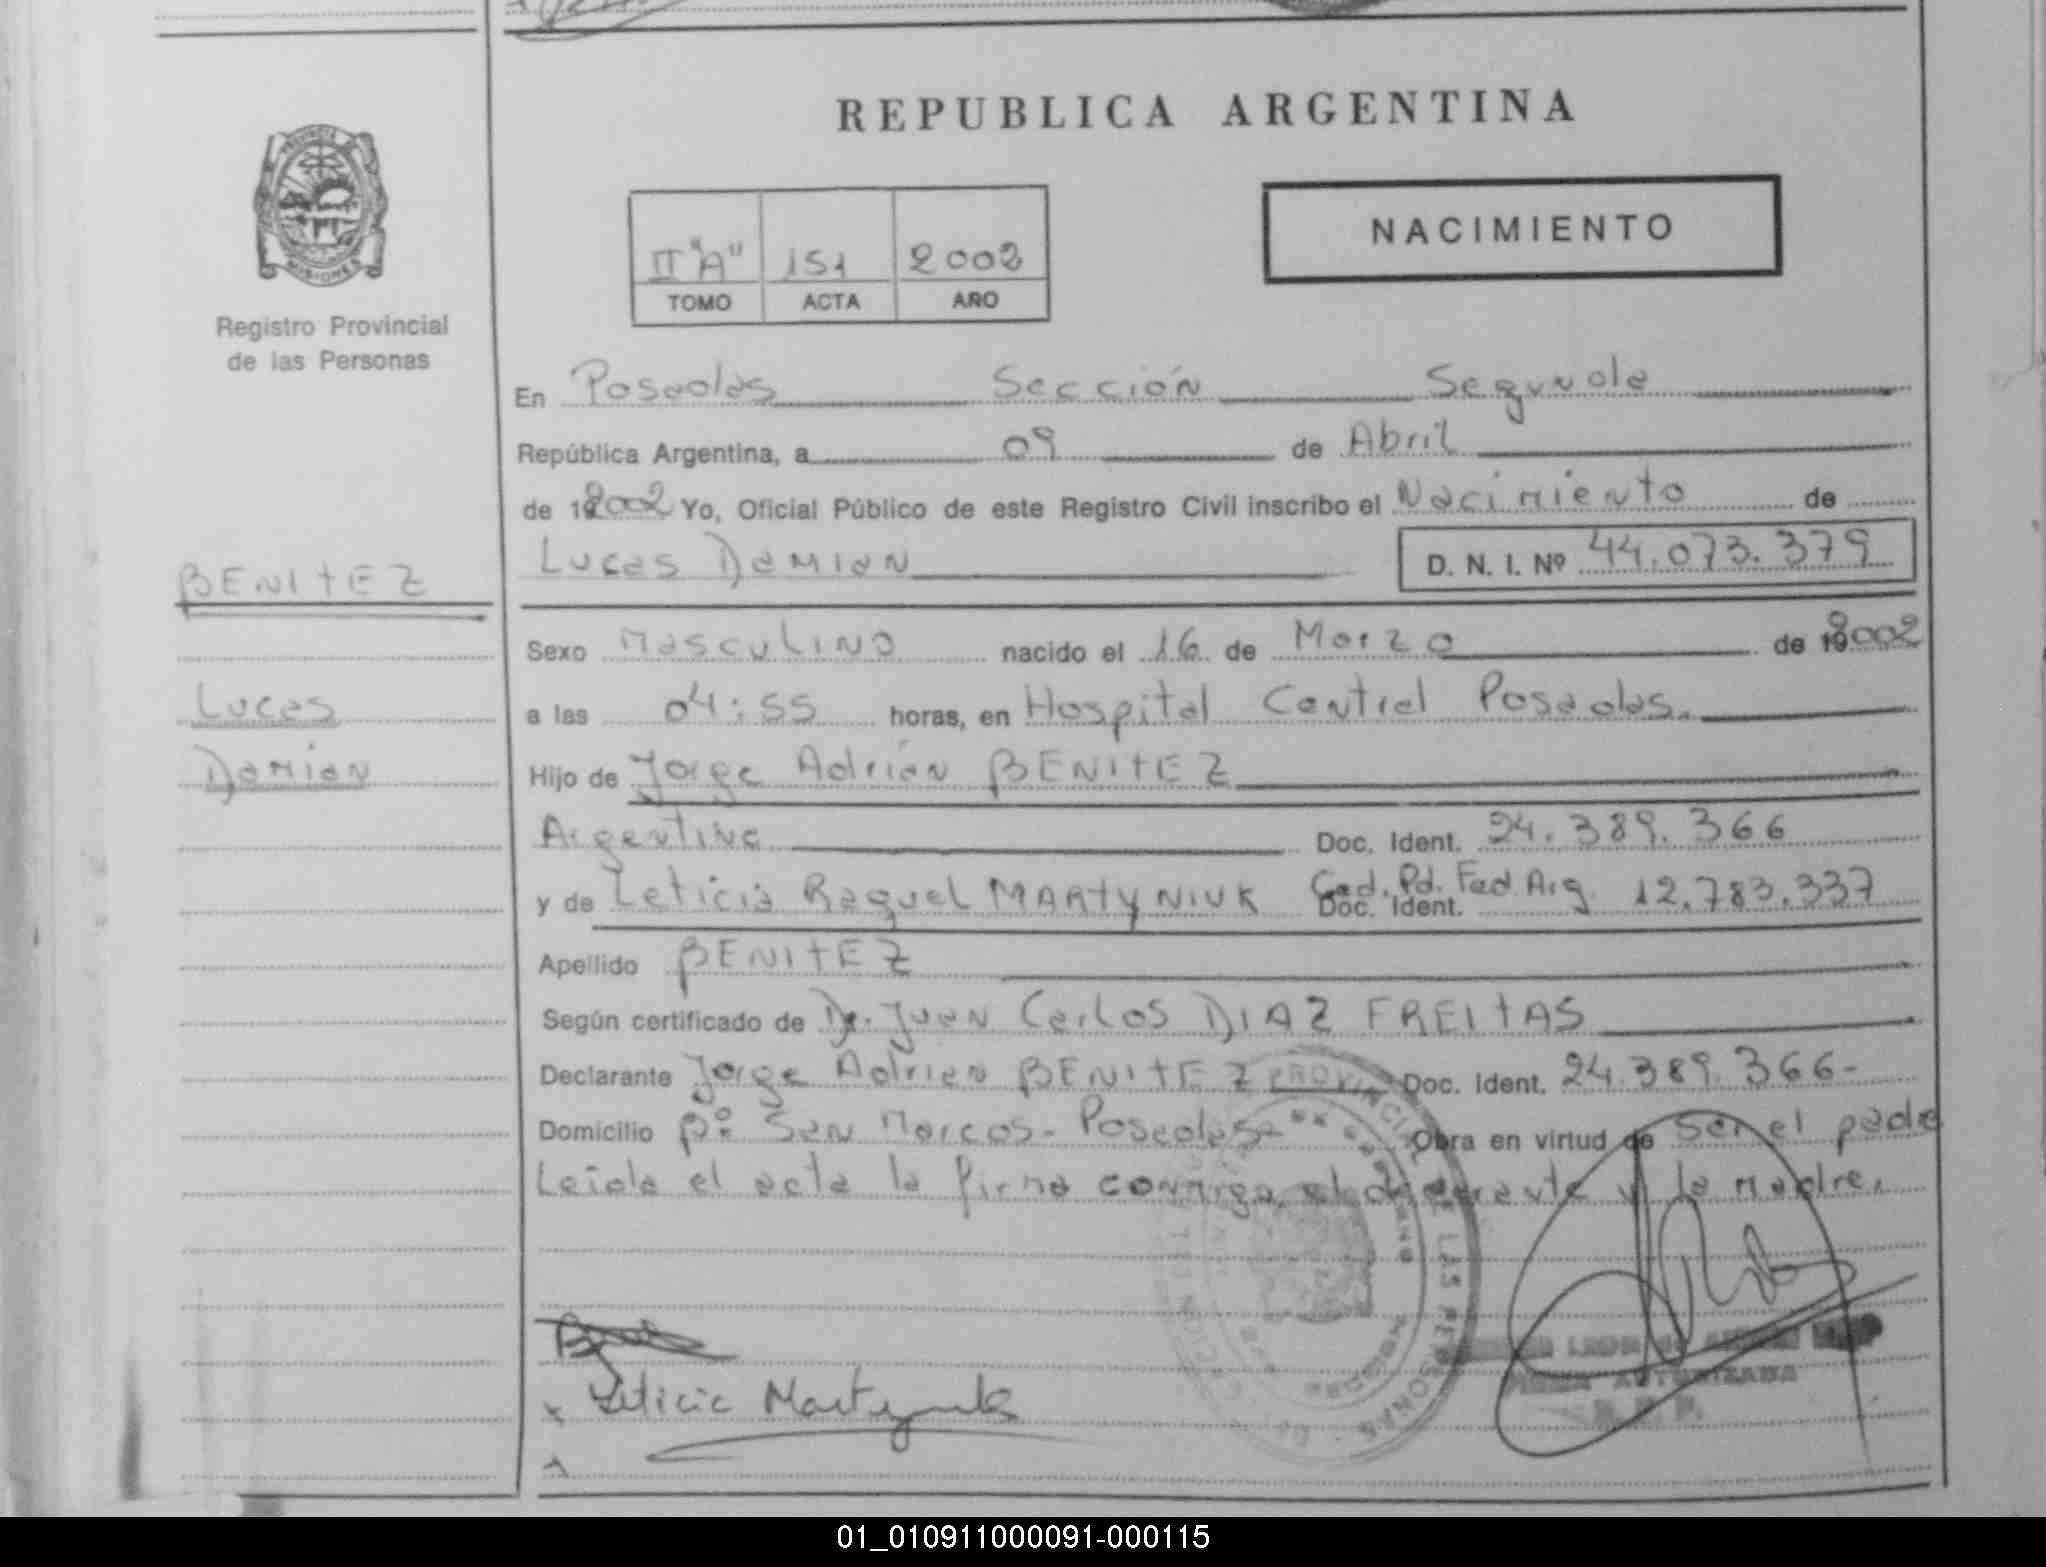 REPUBLICA ARGENTINA
PROVINCIA
MISIONES
Registro Provincial
de las Personas
II "A" 151 2002
TOMO ACTA AÑO
NACIMIENTO
En Posadas Sección Segunda
República Argentina, a 09 de Abril
de 192002 Yo, Oficial Público de este Registro Civil inscribo el Nacimiento de
Lucas Damian D. N. I. Nº 44.073.379
BENITEZ
Sexo Masculino nacido el 16 de Marzo de 192002
Lucas
a las 04:55 horas, en Hospital Central Posadas.
Damian
Hijo de Jorge Adrián BENITEZ
Argentina Doc. Ident. 24.389.366
y de Leticia Raquel MARTYNIUK Doc. Ident. Ced. Pol. Fed Arg. 12.783.337
Apellido BENITEZ
Según certificado de Dr. Juan Carlos DIAZ FREITAS
Declarante Jorge Adrian BENITEZ Doc. Ident. 24.389.366-
Domicilio Bº San Marcos- Posadas- Obra en virtud de ser el padre
Leida el acta la firma conmigo, el declarante y la madre.
PROVINCIAL DE LAS PERSONAS
Leticia Martyniuk
FIRMA AUTORIZADA
01_010911000091-000115